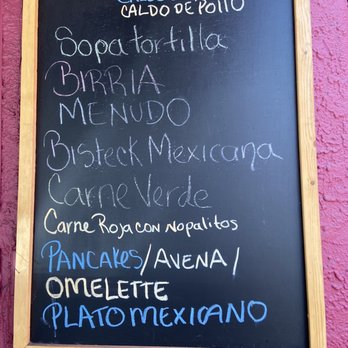 CALDO DE POLLO
Sopa tortilla
BIRRIA
MENUDO
Bisteck Mexicana
Carne Verde
Carne Roja con nopalitos
PANCAKES/AVENA/
OMELETTE
PLATO MEXICANO